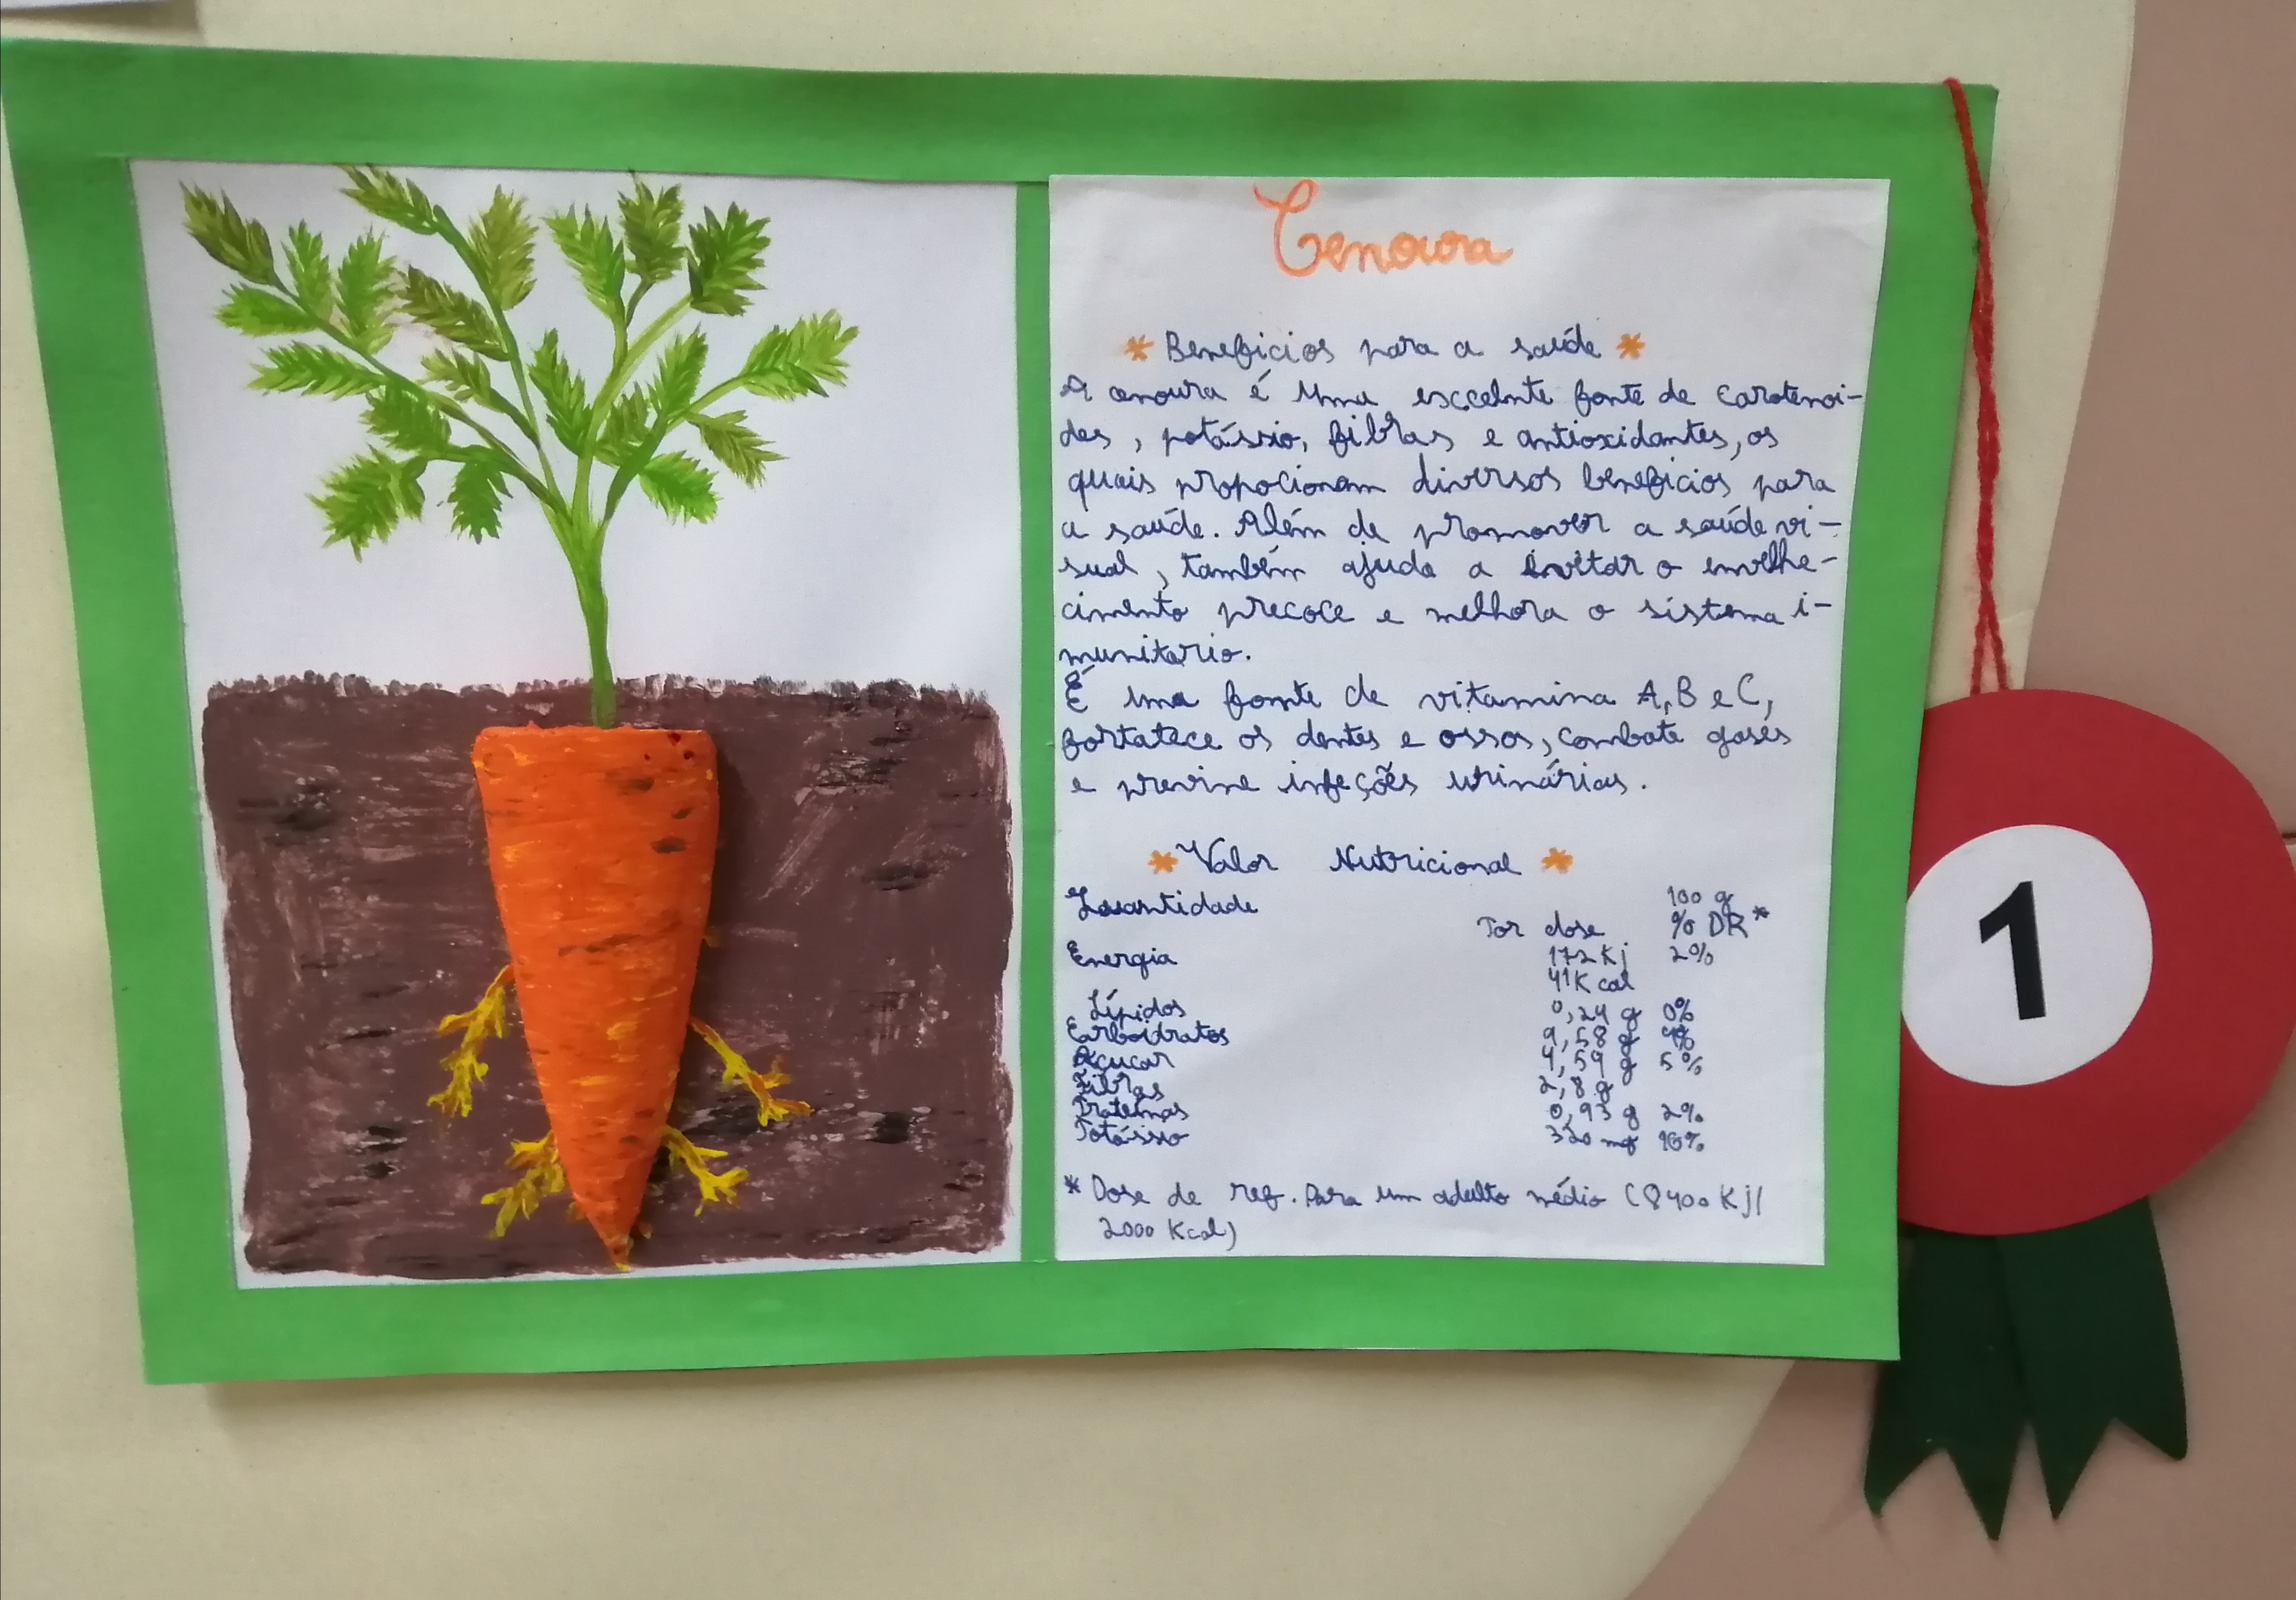 Cenoura
* Beneficios para a saúde *
A cenoura é uma esccelnte fonte de carotenoi-
des, potássio, fibras e antioxidantes, os
quais propocionam diversos beneficios para
a saúde. Além de promover a saúde vi-
sual, também ajuda a evitar o envelhe-
cimento precoce e melhora o sistema i-
munitario.
É uma fonte de vitamina A, B e C,
fortatece os dentes e ossos, combate gases
e previne infeções urinárias.
* Valor Nutricional *
Quantidade 100 g
Por dose % DR*
Energia 172 Kj 2%
41 K cal
Lípidos 0,24 g 0%
Carboidratos 9,58 g 4%
Açucar 4,54 g 5%
Fibras 2,8 g
Proteínas 0,93 g 2%
Potássio 320 mg 16%
* Dose de ref. Para um adulto médio (8400 Kj/
2000 Kcal)
1